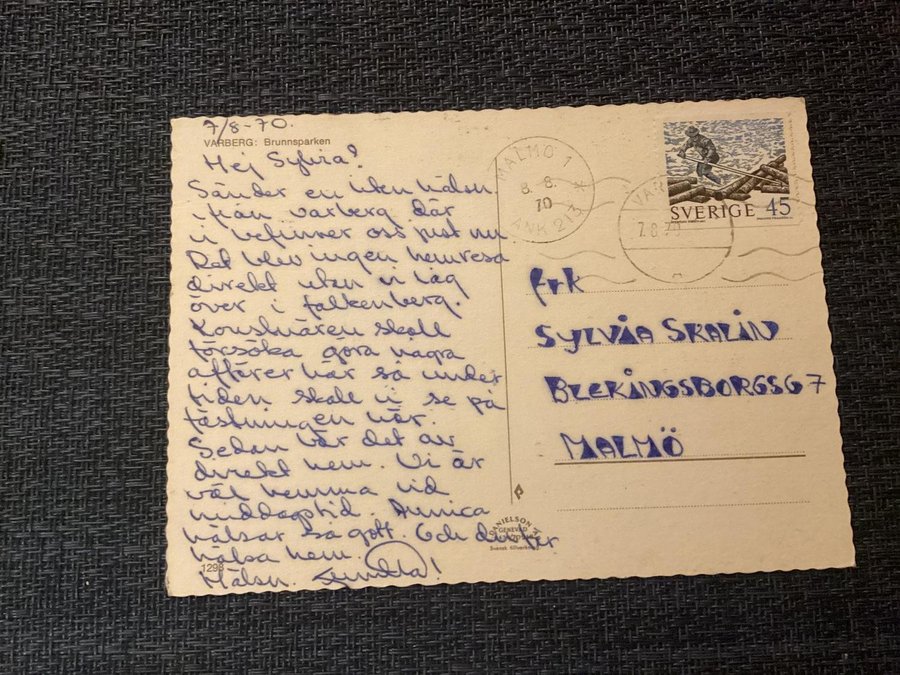 7/8-70.
VARBERG: Brunnsparken
Hej Sylvia!
Sänder en liten hälsn
ifrån varberg där
vi befinner oss just nu
Det blev ingen hemresa
direkt utan vi låg
över i falkenberg.
skall
försöka göra några
affärer här så under
tiden skall vi se på
fästningen här.
Sedan bär det av
direkt hem. Vi är
väl hemma vid
middagstid. Annica
hälsar så gott. Och du får
hälsa hem.
Hälsn.
1293
MALMÖ 1
8. 8.
70
ANK 213
VAR
7.8.70
SVERIGE 45
frk
SYLVIA SKALIN
BLEKINGSBORGSG 7
MALMÖ
DANIELSON
GENEVAD
Svensk tillverkning